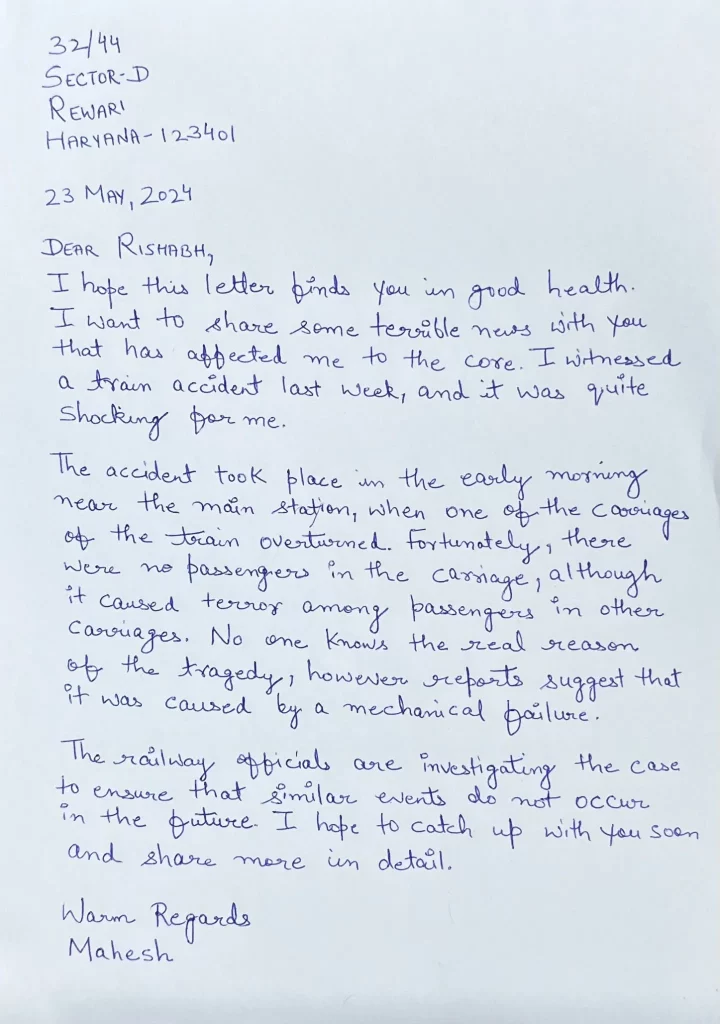 32/44
SECTOR-D
REWARI
HARYANA-123401
23 MAY, 2024
DEAR RISHABH,
I hope this letter finds you in good health.
I want to share some terrible news with you
that has affected me to the core. I witnessed
a train accident last week, and it was quite
shocking for me.
The accident took place in the early morning
near the main station, when one of the carriages
of the train overturned. Fortunately, there
were no passengers in the carriage, although
it caused terror among passengers in other
carriages. No one knows the real reason
of the tragedy, however reports suggest that
it was caused by a mechanical failure.
The railway officials are investigating the case
to ensure that similar events do not occur
in the future. I hope to catch up with you soon
and share more in detail.
Warm Regards
Mahesh